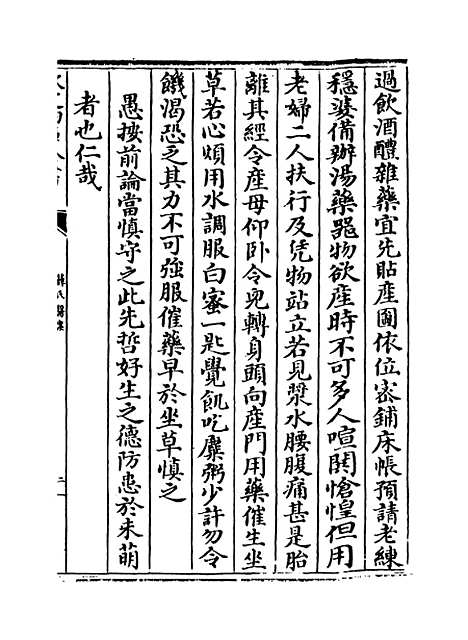 過飲酒醴雜藥宜先貼產圖依位密鋪床帳預請老練
穩婆備辦湯藥器物欲産時不可多人喧鬨愴惶但用
老婦二人扶行及凭物站立若見漿水腰腹痛甚是胎
離其經令産母仰卧令兒轉身頭向産門用藥催生坐
草若心煩用水調服白蜜一匙覺飢吃糜粥少許勿令
饑渴恐乏其力不可強服催藥早於坐草慎之
愚按前論當慎守之此先哲好生之德防患於未萌
者也仁哉
薛氏醫案